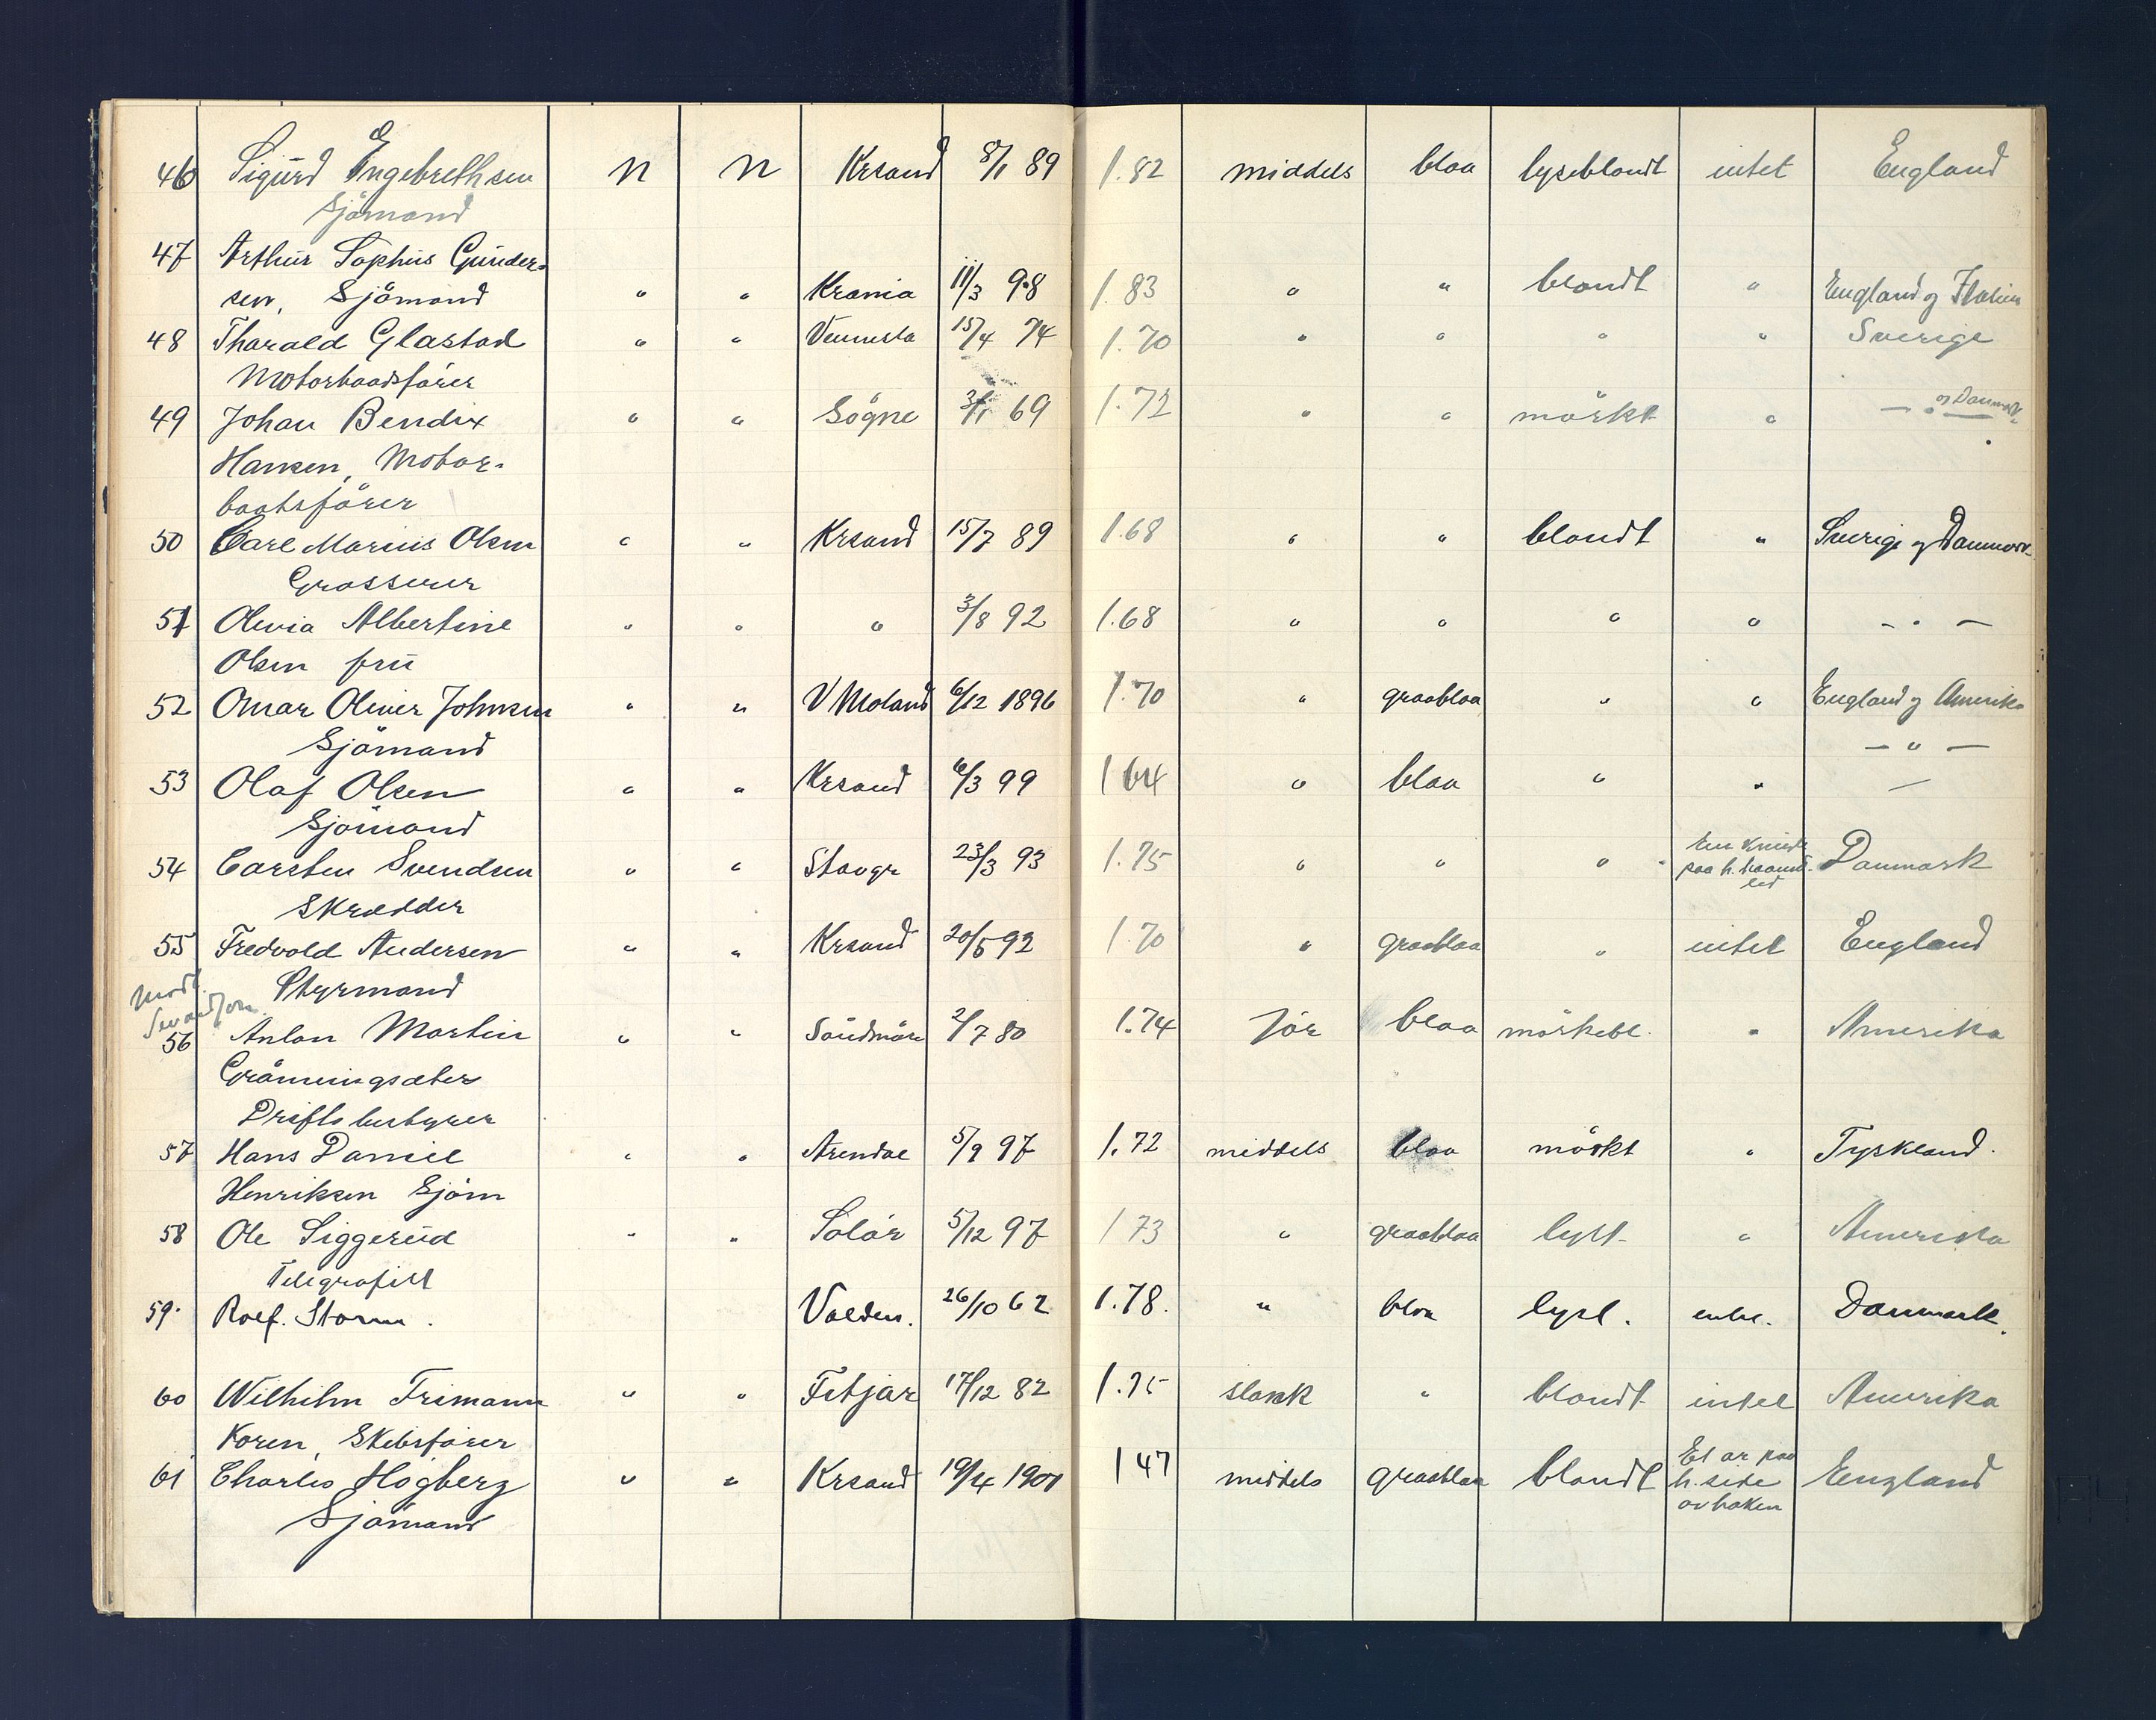 46 Sigurd Engebrethsen n n Krsand 8/1 89 1.82 middels blaa lyseblondt intet England
Sjömand
47 Arthur Sophus Gunder-
sen, Sjömand " " Krania 11/3 98 1.83 " " blondt " England og Italien
48 Tharald Glastad " " Vennesla 15/4 74 1.70 " " " " Sverige
Motorbaadsförer
49 Johan Bendix " " Sögne 3/1 69 1.72 " " mörkt " — " — og Danmark
Hansen, Motor-
baatsförer
50 Carl Marius Olsen " " Krsand 15/7 89 1.68 " " blondt " Sverige og Danmark
Grosserer
51 Olivia Albertine " " " 3/8 92 1.68 " " " " — " —
Olsen fru
52 Omar Oliver Johnsen " " V Moland 6/12 1896 1.70 " graablaa " " England og Amerika
Sjömand — " —
53 Olaf Olsen " " Krsand 6/3 99 1 64 " blaa " " —
Sjömand
54 Carsten Svendsen " " Stavgr 23/3 93 1.75 " " " En knude paa h. haand-led Danmark
Skrædder
55 Fredvold Andersen " " Krsand 20/5 92 1.70 " graablaa " intet England
Styrmand
56 Anton Martin " " Söndmöre 2/7 80 1.74 för blaa mörkebl. " Amerika
Grönningsæter
Driftsbestyrer
57 Hans Daniel " " Arendal 5/9 97 1.72 middels blaa mörkt " Tyskland.
Henriksen Sjöm
58 Ole Siggerud " " Solör 5/12 97 1 73 " graablaa lyst " Amerika
Telegrafist
59. Rolf. Storm. Valders. 26/10 62 1.78. " blaa lyst. intet. Danmark.
60 Wilhelm Frimann " " Fitjar 17/12 82 1.75 slank " blondt intet Amerika
Koren, Skibsförer
61 Charles Högberg " " Krsand 19/4 1901 1 47 middels graablaa blondt Et ar paa h. side av haken England
Sjömand